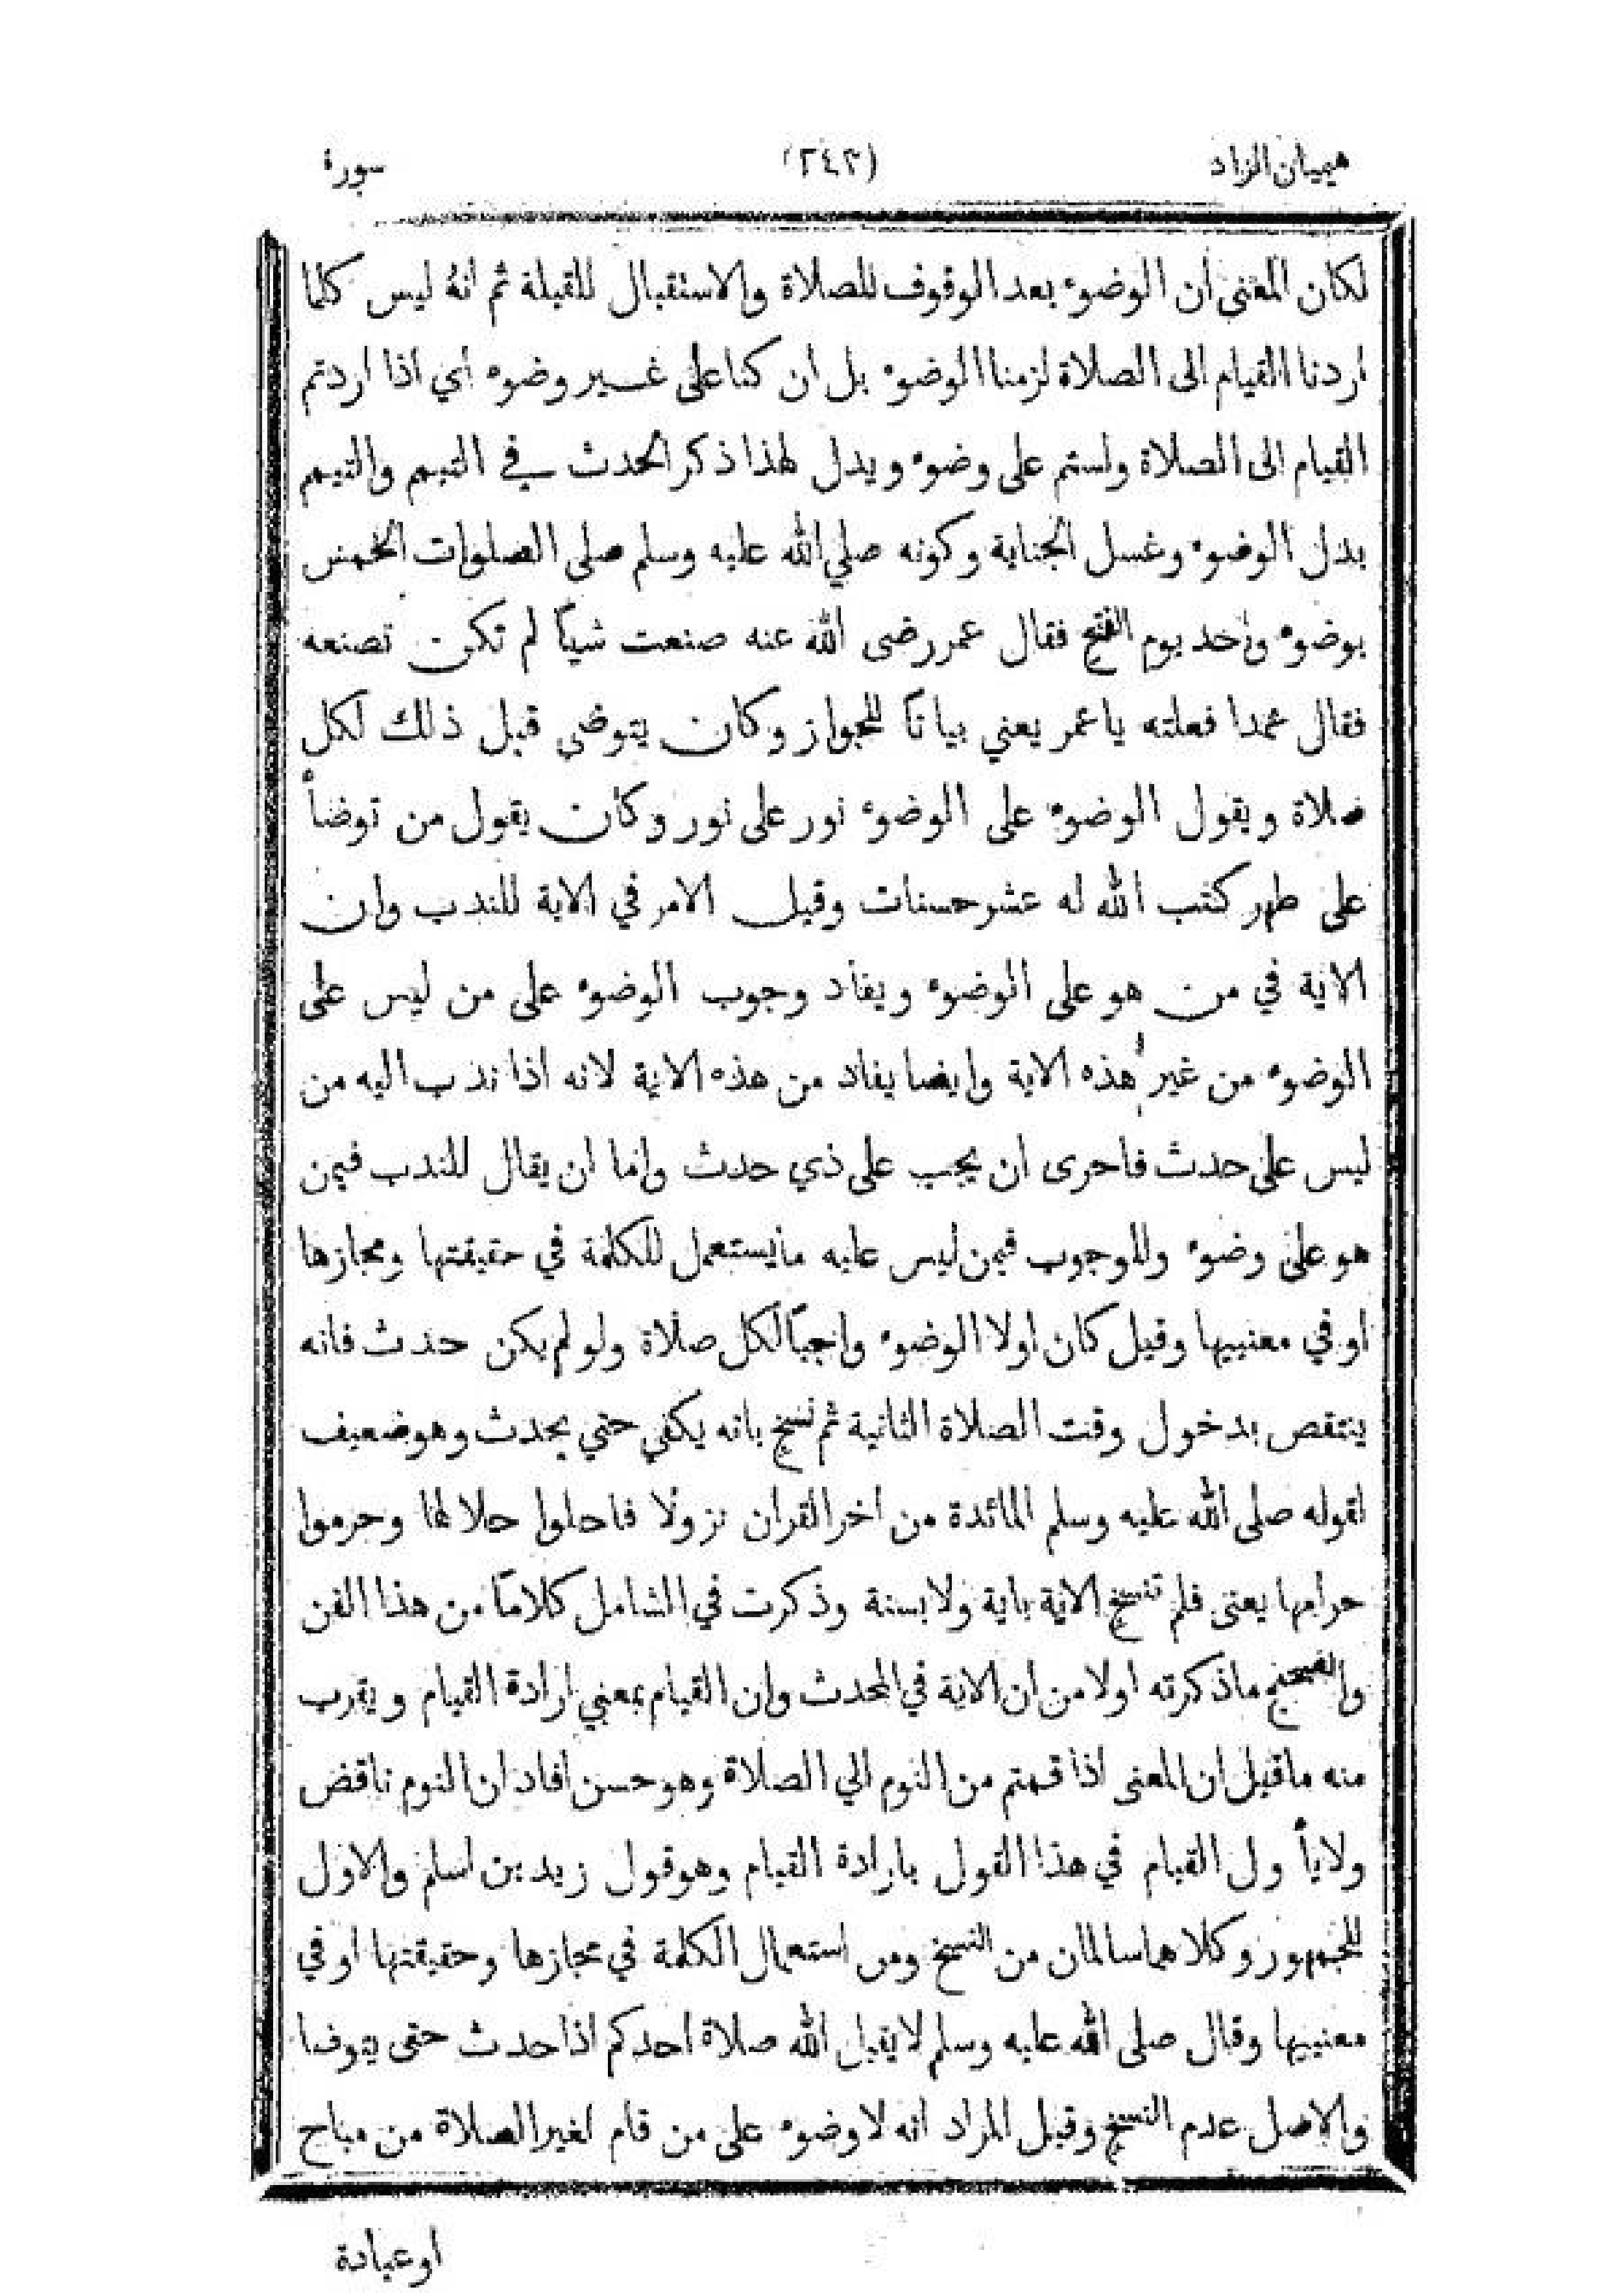 هيميان الزاد (٢٤٣) سورة
لكان المعنى ان الوضوء بعد الوقوف للصلاة والاستقبال للقبلة ثم انه ليس كلما
اردنا القيام الى الصلاة لزمنا الوضوء بل ان كنا على غير وضوء أي اذا اردتم
القيام الى الصلاة ولستم على وضوء ويدل لهذا ذكر الحدث في التيمم والتيمم
بدل الوضوء وغسل الجنابة وكونه صلي الله عليه وسلم صلى الصلوات الخمس
بوضوء واحد يوم الفتح فقال عمر رضى الله عنه صنعت شيأ لم تكن تصنعه
فقال عمدا فعلته يا عمر يعني بيانا للجواز وكان يتوضى قبل ذلك لكل
صلاة ويقول الوضوء على الوضوء نور على نور وكان يقول من توضأ
على طهر كتب الله له عشر حسنات وقيل الامر في الاية للندب وان
الاية في من هو على الوضوء ويفاد وجوب الوضوء على من ليس على
الوضوء من غير هذه الاية وايضا يفاد من هذه الاية لانه اذا ندب اليه من
ليس على حدث فاحرى ان يجب على ذي حدث واما ان يقال للندب فيمن
هو على وضوء وللوجوب فيمن ليس عليه ما يستعمل للكلمة في حقيقتها ومجازها
او في معنييها وقيل كان اولا الوضوء واجبًا لكل صلاة ولو لم يكن حدث فانه
ينتقص بدخول وقت الصلاة الثانية ثم نسخ بانه يكفي حتي يحدث وهو ضعيف
لقوله صلى الله عليه وسلم المائدة من اخر القران نزولا فاحلوا حلالها وحرموا
حرامها يعنى فلم تنسخ الاية باية ولا بسنة وذكرت في الشامل كلامًا من هذا الفن
والصحيح ماذكرته اولا من ان الاية في المحدث وان القيام بمعني ارادة القيام ويقرب
منه ما قيل ان المعنى اذا قمتم من النوم الي الصلاة وهو حسن افاد ان النوم ناقض
ولا يأول القيام في هذا القول بارادة القيام وهو قول زيد بن اسلم والاول
للجمهور وكلاهما سالمان من النسخ ومن استعمال الكلمة في مجازها وحقيقتها او في
معنييها وقال صلى الله عليه وسلم لا يقبل الله صلاة احدكم اذا حدث حتى يتوضا
والاصل عدم النسخ وقيل المراد انه لا وضوء على من قام لغير الصلاة من مباح
او عبادة